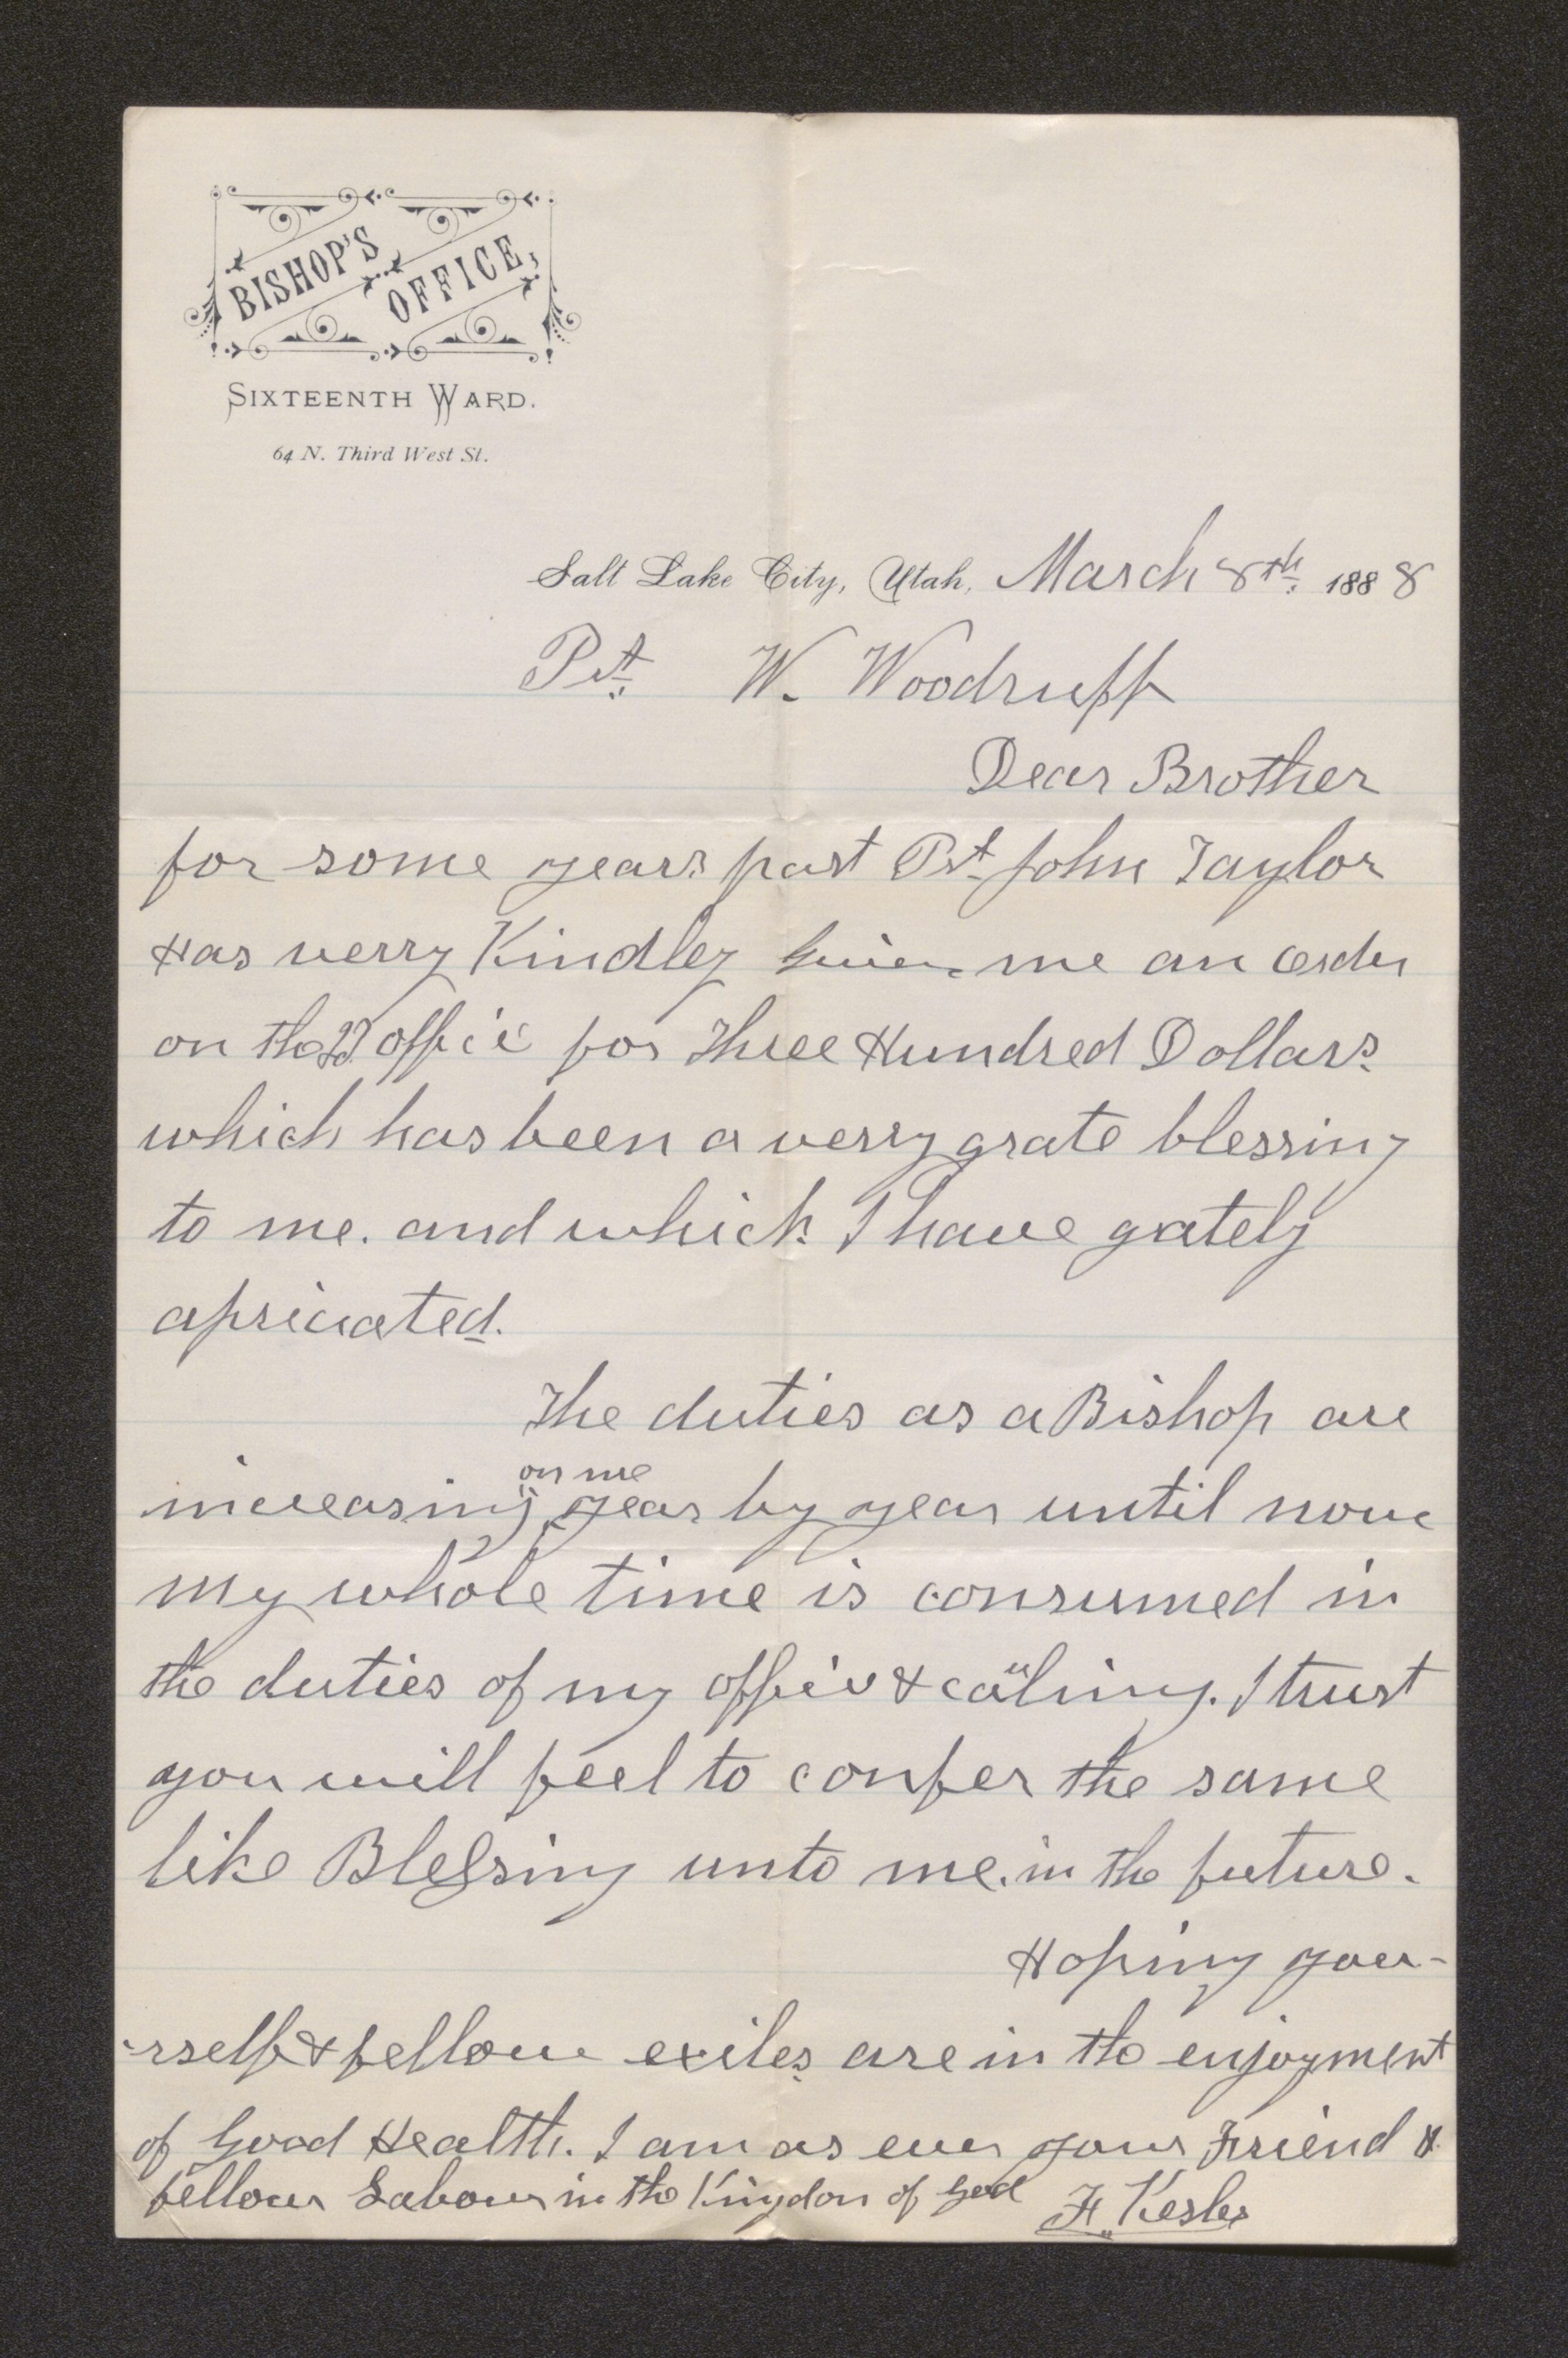 BISHOP'S OFFICE,
SIXTEENTH WARD.
64 N. Third West St.
Salt Lake City, Utah, March 8th. 1888
Pst. W. Woodruff
Dear Brother
for some years past Pst John Taylor
Has verry Kindley Given me an order
on the offi[c]e for Three Hundred Dollars
which has been a verry grate blessing
to me. and which I have gately
apriciated.
The duties as a Bishop are
on me
increasing year by year until now
my whole time is consumed in
the duties of my office & caling. I trust
you will feel to confer the same
like Blessing unto me. in the future.
Hoping you-
-rself & fellow exiles are in the enjoyment
of Good Health. I am as ever your Friend &
fellow Labour in the Kingdon of God F. Kesler